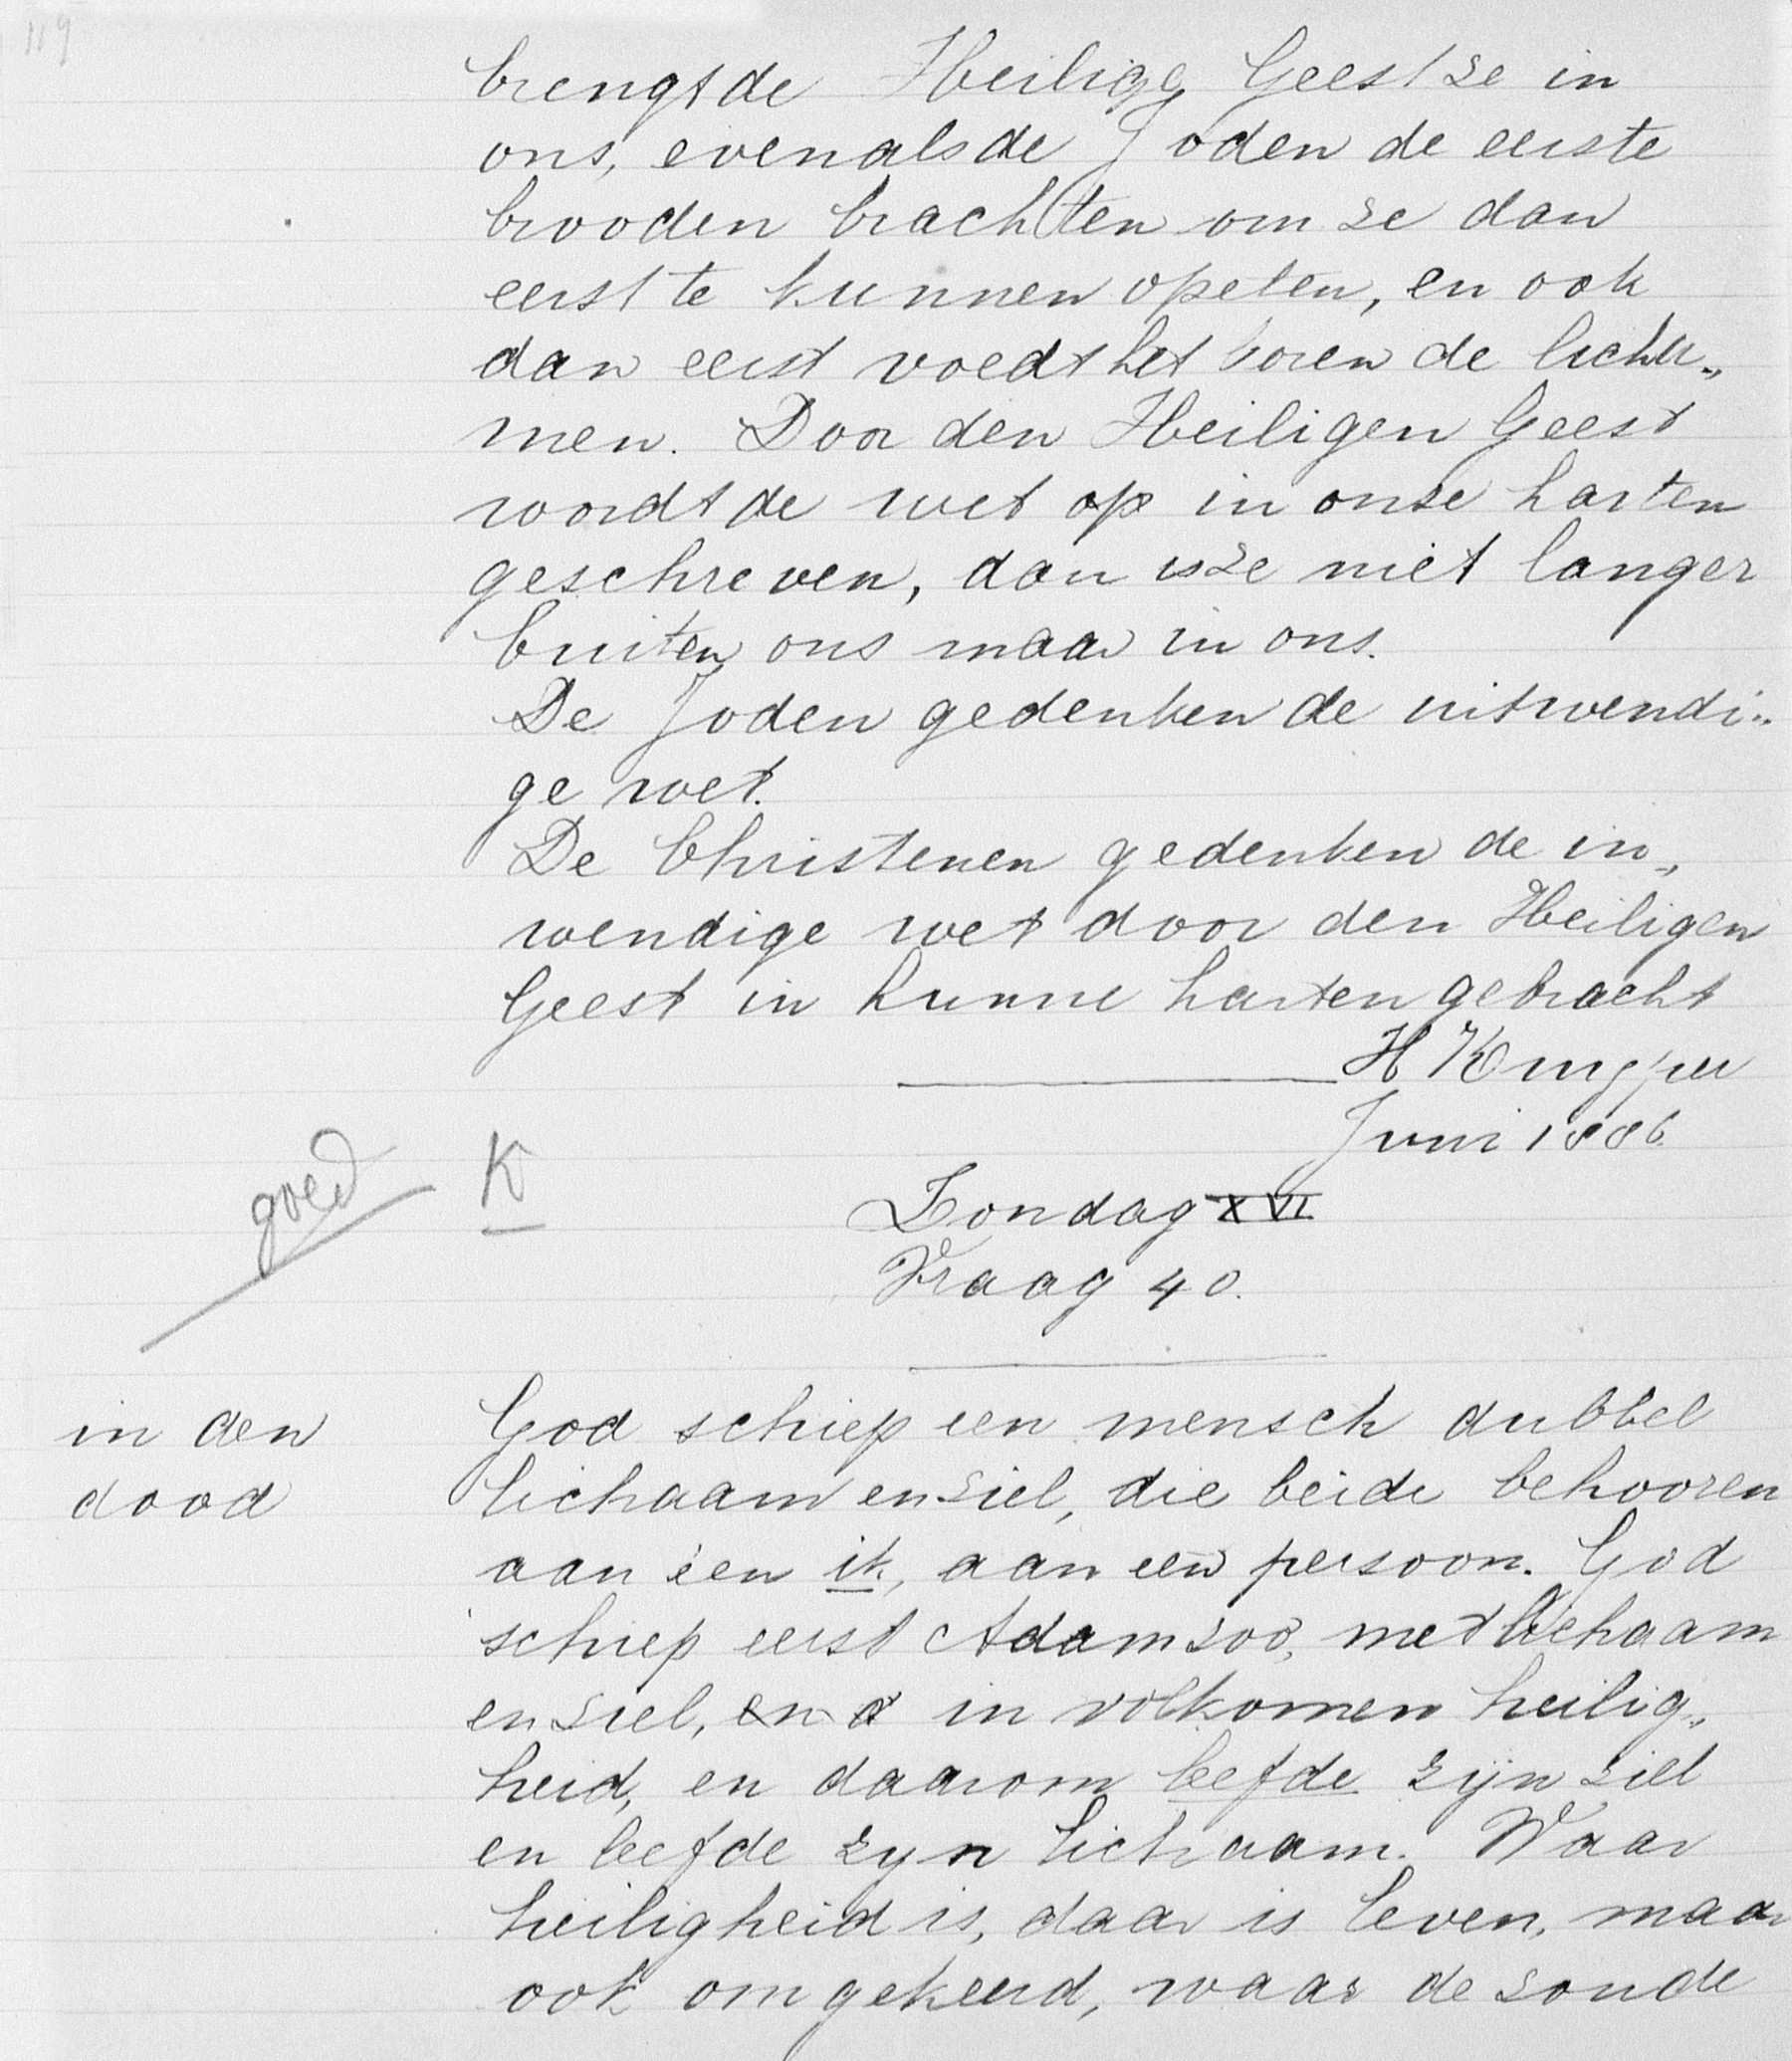 119
brengt de Heilige Geest ze in
ons, evenals de Joden de eerste
brooden brachten om ze dan
eerst te kunnen opeten, en ook
dan eerst voedt het koren de licha„
men. Door den Heiligen Geest
wordt de wet op in onze harten
geschreven, dan is ze niet langer
buiten ons maar in ons.
De Joden gedenken de uitwendi„
ge wet.
De Christenen gedenken de in„
wendige wet door den Heiligen
Geest in hunne harten gebracht
H Kuyper
Juni 1886
goed K
Zondag XVI
Vraag 40.
in den
dood
God schiep een mensch dubbel
lichaam en ziel, die beide behooren
aan éen ik, aan een persoon. God
schiep eerst Adam zoo, met lichaam
en ziel, en d in volkomen heilig„
heid, en daarom leefde zijn ziel
en leefde zyn lichaam. Waar
heiligheid is, daar is leven, maar
ook omgekeerd, waar de zonde